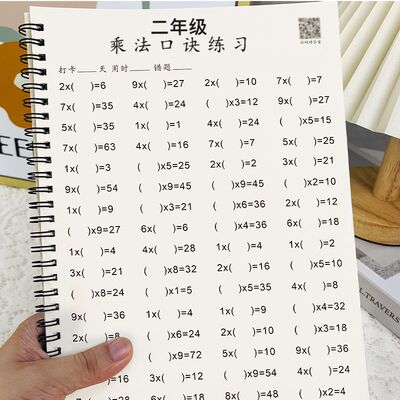 二年级
乘法口诀练习
打卡____天 用时____ 错题____
扫码对答案
2x( )=6 9x( )=27 2x( )=10 7x( )=7
7x( )=35 4x( )=24 ( )x3=12 ( )x9=36
5x( )=35 1x( )=1 4x( )=24 ( )x5=15
7x( )=63 4x( )=16 7x( )=7 5x( )=25
1x( )=3 ( )x5=25 2x( )=2 3x( )=21
9x( )=54 ( )x9=45 ( )x9=45 ( )x2=10
1x( )=9 ( )x3=21 ( )x6=36 2x( )=12
( )x9=27 6x( )=6 ( )x4=36 6x( )=18
1x( )=4 4x( )=28 1x( )=4 1x( )=2
3x( )=21 ( )x8=32 2x( )=16 ( )x5=10
( )x8=24 ( )x1=5 ( )x5=35 ( )x5=40
9x( )=36 1x( )=4 1x( )=9 ( )x4=32
2x( )=8 ( )x6=24 2x( )=10 ( )x3=18
( )x9=72 5x( )=30 9x( )=36
)=16 3x( )=12 ( )x4=24 4x( )=36
=24 6x( )=18 8x( )=48 ( )x2=4